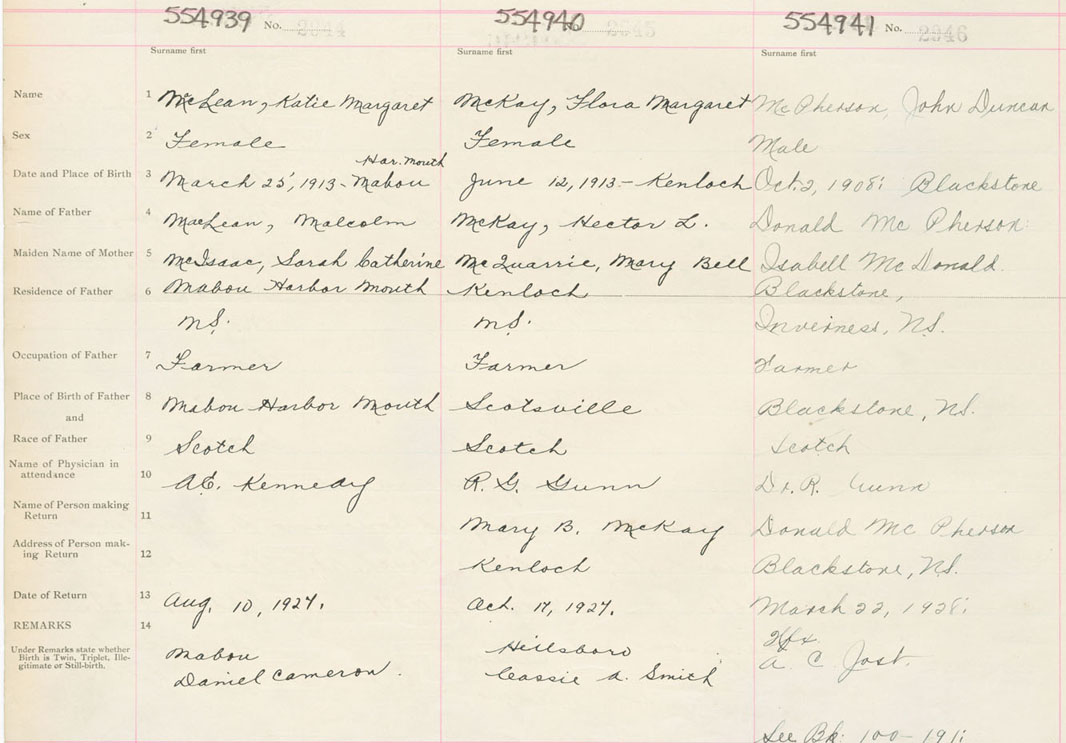 554939 No. 2944
554940 No. 2945
554941 No. 2946
Surname first Surname first Surname first
Name 1 McLean, Katie Margaret McKay, Flora Margaret McPherson, John Duncan
Sex 2 Female Female Male
Har. Mouth
Date and Place of Birth 3 March 25, 1913 - Mabou June 12, 1913 - Kenloch Oct. 2, 1908: Blackstone
Name of Father 4 MacLean, Malcolm McKay, Hector L. Donald McPherson
Maiden Name of Mother 5 McIsaac, Sarah Catherine McQuarrie, Mary Bell Isabell McDonald.
Residence of Father 6 Mabou Harbor Mouth Kenloch Blackstone,
N.S. N.S. Inverness, N.S.
Occupation of Father 7 Farmer Farmer Farmer
Place of Birth of Father 8 Mabou Harbor Mouth Scotsville Blackstone, N.S.
and
Race of Father 9 Scotch Scotch Scotch
Name of Physician in
attendance 10 A.E. Kennedy R. G. Gunn Dr. R. Gunn
Name of Person making
Return 11 Mary B. McKay Donald McPherson
Address of Person mak-
ing Return 12 Kenloch Blackstone, N.S.
Date of Return 13 Aug. 10, 1927. Oct. 17, 1927. March 22, 1928:
REMARKS 14 Hfx
Under Remarks state whether
Birth is Twin, Triplet, Ille-
gitimate or Still-birth.
Mabou Hillsboro A. C. Jost.
Daniel Cameron. Cassie A. Smith
See Bk: 100-191: